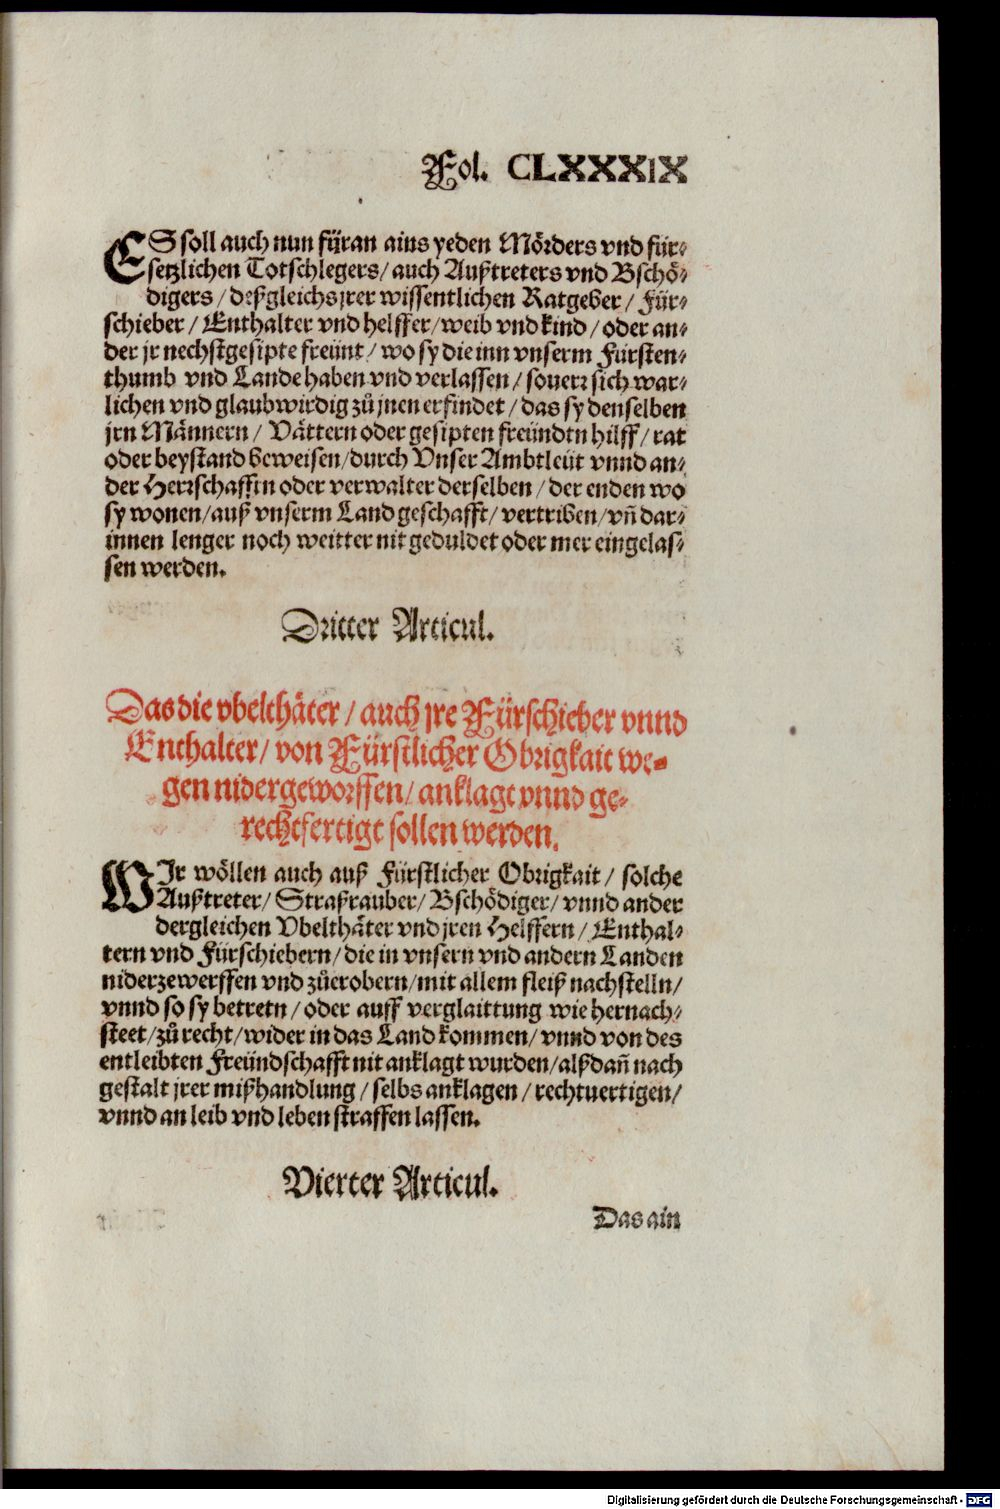 Fol. CLXXXIX
ES soll auch nun füran ains yeden Mörders vnd für⸗
setzlichen Totschlegers/ auch Außtreters vnd Bschö⸗
digers / deßgleichs jrer wissentlichen Ratgeber / Für⸗
schieber / Enthalter vnd helffer/ weib vnd kind / oder an⸗
der jr nechstgesipte freünt / wo sy die inn vnserm Fürsten⸗
thumb vnd Lande haben vnd verlassen / souerr sich war⸗
lichen vnd glaubwirdig zů jnen erfindet / das sy denselben
jrn Männern / Vättern oder gesipten freündtn hilff/ rat
oder beystand beweisen/durch Vnser Ambtleüt vnnd an⸗
der Herrschafftn oder verwalter derselben / der enden wo
sy wonen/auß vnserm Land geschafft/ vertriben/ vñ dar⸗
innen lenger noch weitter nit geduldet oder mer eingelas⸗
sen werden.
Dritter Articul.
Das die vbelthäter / auch jre Fürschieber vnnd
Enthalter/ von Fürstlicher Obrigkait we⸗
gen nidergeworffen/ anklagt vnnd ge⸗
rechtfertigt sollen werden.
WIr wöllen auch auß Fürstlicher Obrigkait / solche
Außtreter/ Straßrauber/ Bschödiger/ vnnd ander
dergleichen Vbelthäter vnd jren Helffern / Enthal⸗
tern vnd Fürschiebern/ die in vnsern vnd andern Landen
niderzewerffen vnd zůerobern/ mit allem fleiß nachstelln/
vnnd so sy betretn / oder auff verglaittung wie hernach⸗
steet/ zů recht/ wider in das Land kommen/ vnnd von des
entleibten Freündschafft nit anklagt wurden/ alßdañ nach
gestalt jrer mißhandlung / selbs anklagen / rechtuertigen/
vnnd an leib vnd leben straffen lassen.
Vierter Articul.
Das ain
Digitalisierung gefördert durch die Deutsche Forschungsgemeinschaft - DFG